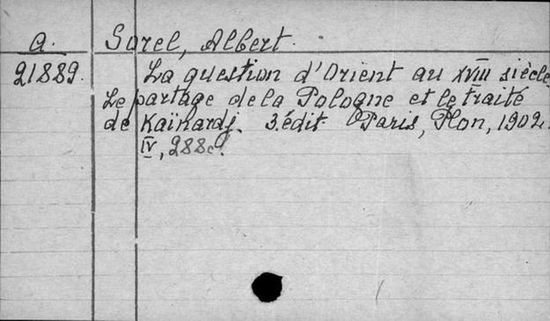 a. Sorel, Albert.
21889. La question d'Orient au XVIII siècle
Le partage de la Pologne et le traité
de Kaïnardj. 3. édit. Paris, Plon, 1902.
IV, 288c.